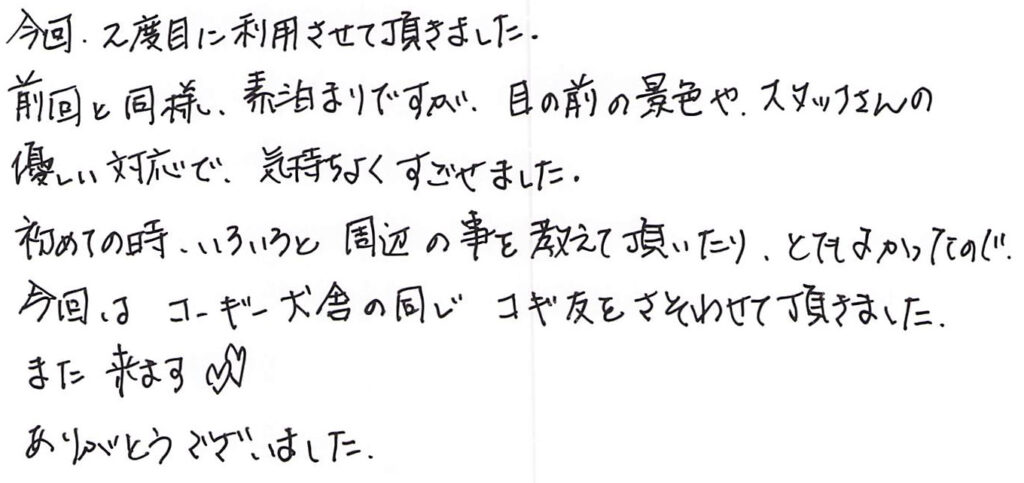 今回、2度目に利用させて頂きました.
前回と同様、素泊まりですが、目の前の景色や、スタッフさんの
優しい対応で、気持ちよくすごせました.
初めての時、いろいろと周辺の事を教えて頂いたり、とてもよかったので、
今回は コーギー犬舎の同じ コギ友をさそわせて頂きました.
また 来ます♡♡
ありがとうございました.